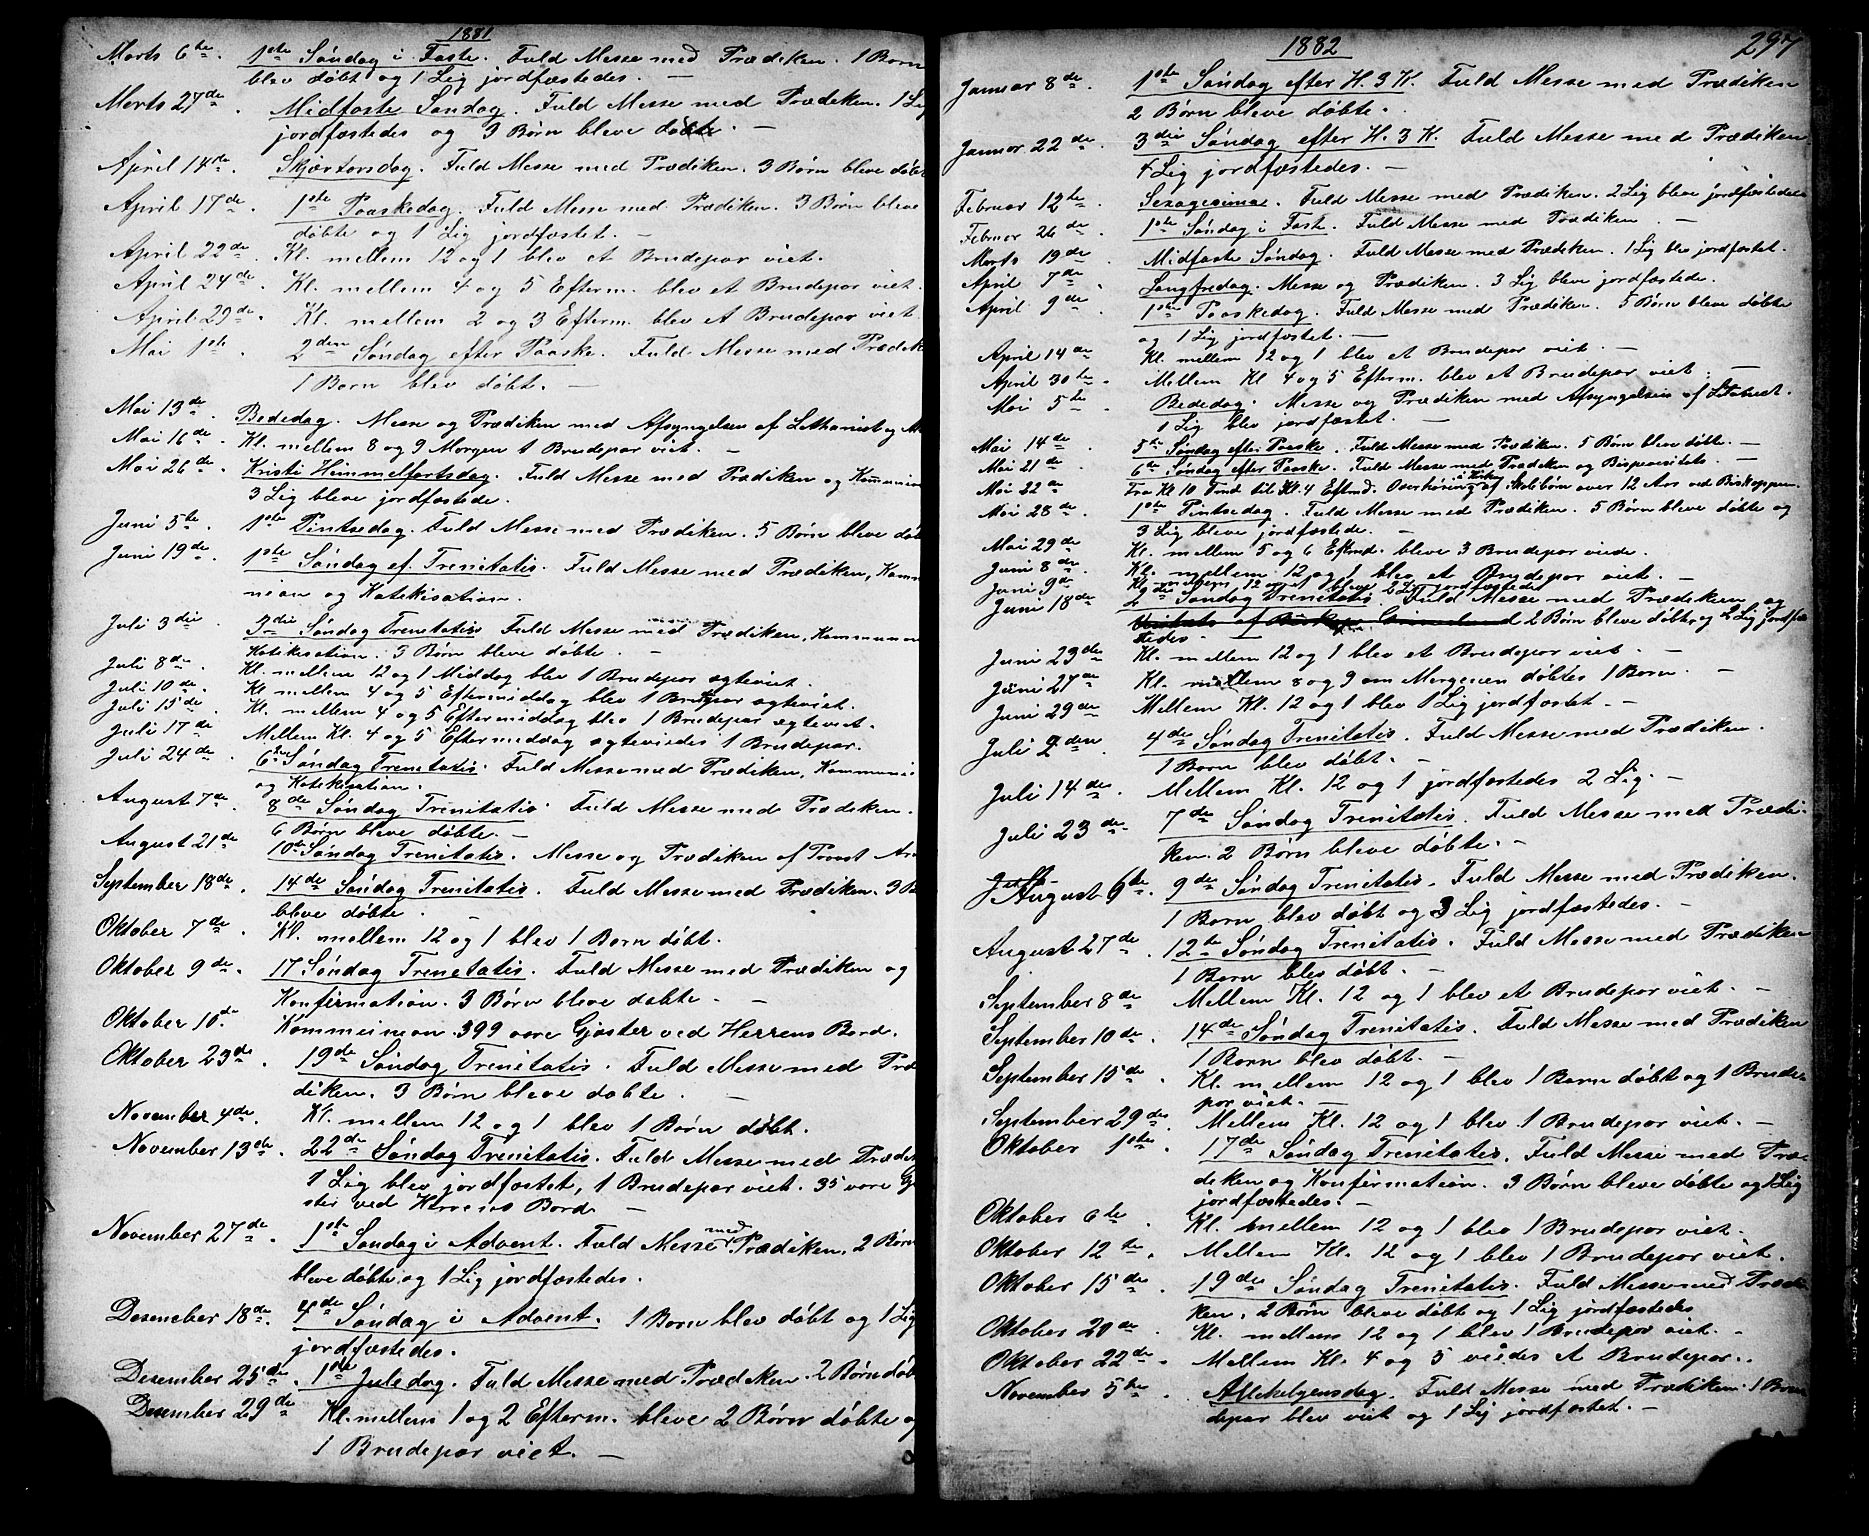 1881
Marts 6te. 1ste Søndag i Faste. Fuld Messe med Prædiken. 1 Barn
blev døbt og 1 Lig jordfæstedes. —
Marts 27de. Midfaste Søndag. Fuld Messe med Prædiken. 1 Lig
jordfæstedes og 3 Børn bleve døbte. —
April 14de. Skjærtorsdag. Fuld Messe med Prædiken. 3 Børn bleve døbt
April 17de. 1ste Paaskedag. Fuld Messe med Prædiken. 3 Børn bleve
døbte og 1 Lig jordfæstet. —
April 22de. Kl. mellem 12 og 1 blev et Brudepar viet.
April 24de. Kl. mellem 4 og 5 Efterm. blev et Brudepar viet.
April 29de. Kl. mellem 2 og 3 Efterm. blev et Brudepar viet
Mai 1ste. 2den Søndag efter Paaske. Fuld Messe med Prædik
1 Barn blev døbt. —
Mai 13de. Bededag. Messe og Prædiken med Afsyngelsen af Lithaniet og
Mai 16de. Kl. mellem 8 og 9 Morgen 1 Brudepar viet. —
Mai 26de. Kristi Himmelfartsdag. Fuld Messe med Prædiken og Kommunion
3 Lig bleve jordfæstede.
Juni 5te. 1ste Pintsedag. Fuld Messe med Prædiken. 5 Børn bleve døb
Juni 19de. 1ste Søndag ef. Trenitatis. Fuld Messe med Prædiken, Kommu
nion og Katekisation.
Juli 3die. 3die Søndag Trenitatis Fuld Messe med Prædiken, Kommunion
Katekisation. 3 Børn bleve døbte. —
Juli 8de. Kl. mellem 12 og 1 Middag blev 1 Brudepar ægteviet.
Juli 10de. Kl mellem 4 og 5 Eftermiddag blev 1 Brudepar ægteviet.
Juli 15de. Kl. mellem 4 og 5 Eftermiddag blev 1 Brudepar ægteviet.
Juli 17de Mellem Kl. 4 og 5 Eftermeddag ægteviedes 1 Brudepar.
Juli 24de. 6te Søndag Trenitatis. Fuld Messe med Prædiken, Kommunio
og Katekisation.
August 7de. 8de Søndag Trenitatis. Fuld Messe med Prædiken.
6 Børn bleve døbte. —
August 21de 10de Søndag Trenitatis. Messe og Prædiken af Provst
September 18de. 14de Søndag Trenitatis. Fuld Messe med Prædiken. 3 Bø
bleve døbte. —
Oktober 7de. Kl. mellem 12 og 1 blev 1 Barn døbt.
Oktober 9de. 17 Søndag Trenitatis. Fuld Messe med Prædiken og
Konfirmation. 3 Børn bleve døbte. —
Oktober 10de Kommunion. 399 vare Gjæster ved Herrens Bord.
Oktober 23de. 19de Søndag Trenitatis. Fuld Messe med Præ
diken. 3 Børn bleve døbte. —
November 4de. Kl. mellem 12 og 1 blev 1 Børn døbt.
November 13de. 22de Søndag Trenitatis. Fuld Messe med Prædik
1 Lig blev jordfæstet, 1 Brudepar viet. 35 vare Gjæ
ster ved Herrens Bord. —
November 27de. 1ste Søndag i Advent. Fuld Messe med Prædiken. 2 Børn
bleve døbte og 1 Lig jordfæstedes.
Desember 18de. 4de Søndag i Advent. 1 Barn blev døbt og 1 Lig
jordfæstedes.
Desember 25de. 1ste Juledag. Fuld Messe med Prædiken. 2 Børn døb
Desember 29de Kl. mellem 1 og 2 Efterm. bleve 2 Børn døbte og
1 Brudepar viet. —
1882
297
Januar 8de. 1ste Søndag efter H. 3 K. Fuld Messe med Prædiken
2 Børn bleve døbte.
Januar 22de. 3die Søndag efter H. 3 K. Fuld Messe med Prædiken.
4 Lig jordfæstedes. —
Februar 12te. Sexagesimae. Fuld Messe med Prædiken. 2 Lig bleve jordfæstede
Februar 26de. 1ste Søndag i Faste. Fuld Messe med Prædiken. —
Marts 19de. Midfaste Søndag. Fuld Messe med Prædiken. 1 Lig blev jordfæstet.
April 7de. Langfredag. Messe og Prædiken. 3 Lig bleve jordfæstede.
April 9de. 1ste Paaskedag. Fuld Messe med Prædiken. 5 Børn bleve døbte
og 1 Lig jordfæstet. —
April 14de Kl. mellem 12 og 1 blev et Brudepar viet. —
April 30te. Mellem Kl 4 og 5 Efterm. blev et Brudepar viet. —
Mai 5te. Bededag. Messe og Prædiken med Afsyngelsen af Litaniet.
1 Lig blev jordfæstet. —
Mai 14de 5te Søndag efter Paaske. Fuld Messe med Prædiken. 5 Børn bleve døbte. —
Mai 21de. 6te Søndag efter Paaske. Fuld Messe med Prædiken og Bispevisitats. —
Mai 22de Fra Kl 10 Fmd til Kl. 4 Eftmd. Overhøring i Kirken af Skolebørn over 12 Aar ved Biskoppen.
Mai 28de. 1ste Pintsedag. Fuld Messe med Prædiken. 5 Børn bleve døbte og
3 Lig bleve jordfæstede. —
Mai 29de Kl. mellem 5 og 6 Eftmd. bleve 3 Brudepar viede.
Juni 8de Kl. mellem 12 og 1 blev et Brudepar viet. —
Juni 9de Kl. mellem 12 og 1 bleve 2 Lig jordfæstede
Juni 18de 2den Søndag Trenitatis. Fuld Messe med Prædiken og
2 Børn bleve døbte og 2 Lig jordfæ
stedes. —
Juni 23de Kl. mellem 12 og 1 blev et Brudepar viet. —
Juni 27de Kl. mellem 8 og 9 om Morgenen døbtes 1 Barn. —
Juni 29de Mellem Kl. 12 og 1 blev 1 Lig jordfæstet. —
Juli 2den 4de Søndag Trenitatis. Fuld Messe med Prædiken.
1 Barn blev døbt. —
Juli 14de. Mellem Kl. 12 og 1 jordfæstedes 2 Lig. —
Juli 23de 7de Søndag Trenitatis. Fuld Messe med Prædi-
ken. 2 Børn bleve døbte. —
August 6te. 9de Søndag Trenitatis. Fuld Messe med Prædiken.
1 Barn blev døbt og 3 Lig jordfæstedes. —
August 27de. 12te Søndag Trenitatis. Fuld Messe med Prædiken
1 Barn blev døbt. —
September 8de Mellem Kl. 12 og 1 blev et Brudepar viet. —
September 10de. 14de Søndag Trenitatis. Fuld Messe med Prædiken
1 Barn blev døbt. —
September 15de. Kl. mellem 12 og 1 blev 1 Barn døbt og 1 Brude-
par viet. —
September 29de. Mellem Kl. 12 og 1 blev 1 Brudepar viet. —
Oktober 1ste. 17de Søndag Trenitatis. Fuld Messe med Præ-
diken og Konfirmation. 3 Børn bleve døbte og 1 Lig
jordfæstedes. —
Oktober 6te. Kl. mellem 12 og 1 blev 1 Brudepar viet. —
Oktober 12te. Mellem Kl. 12 og 1 blev 1 Brudepar viet.
Oktober 15de. 19de Søndag Trenitatis. Fuld Messe med Prædi
ken. 2 Børn bleve døbt og 1 Lig jordfæstedes
Oktober 20de. Kl. mellem 12 og 1 blev 1 Brudepar viet. —
Oktober 22de. Mellem Kl. 4 og 5 viedes et Brudepar. —
November 5te. Allehelgensdag. Fuld Messe med Prædiken. 1 Bru
depar blev viet og 1 Lig jordfæstet. —